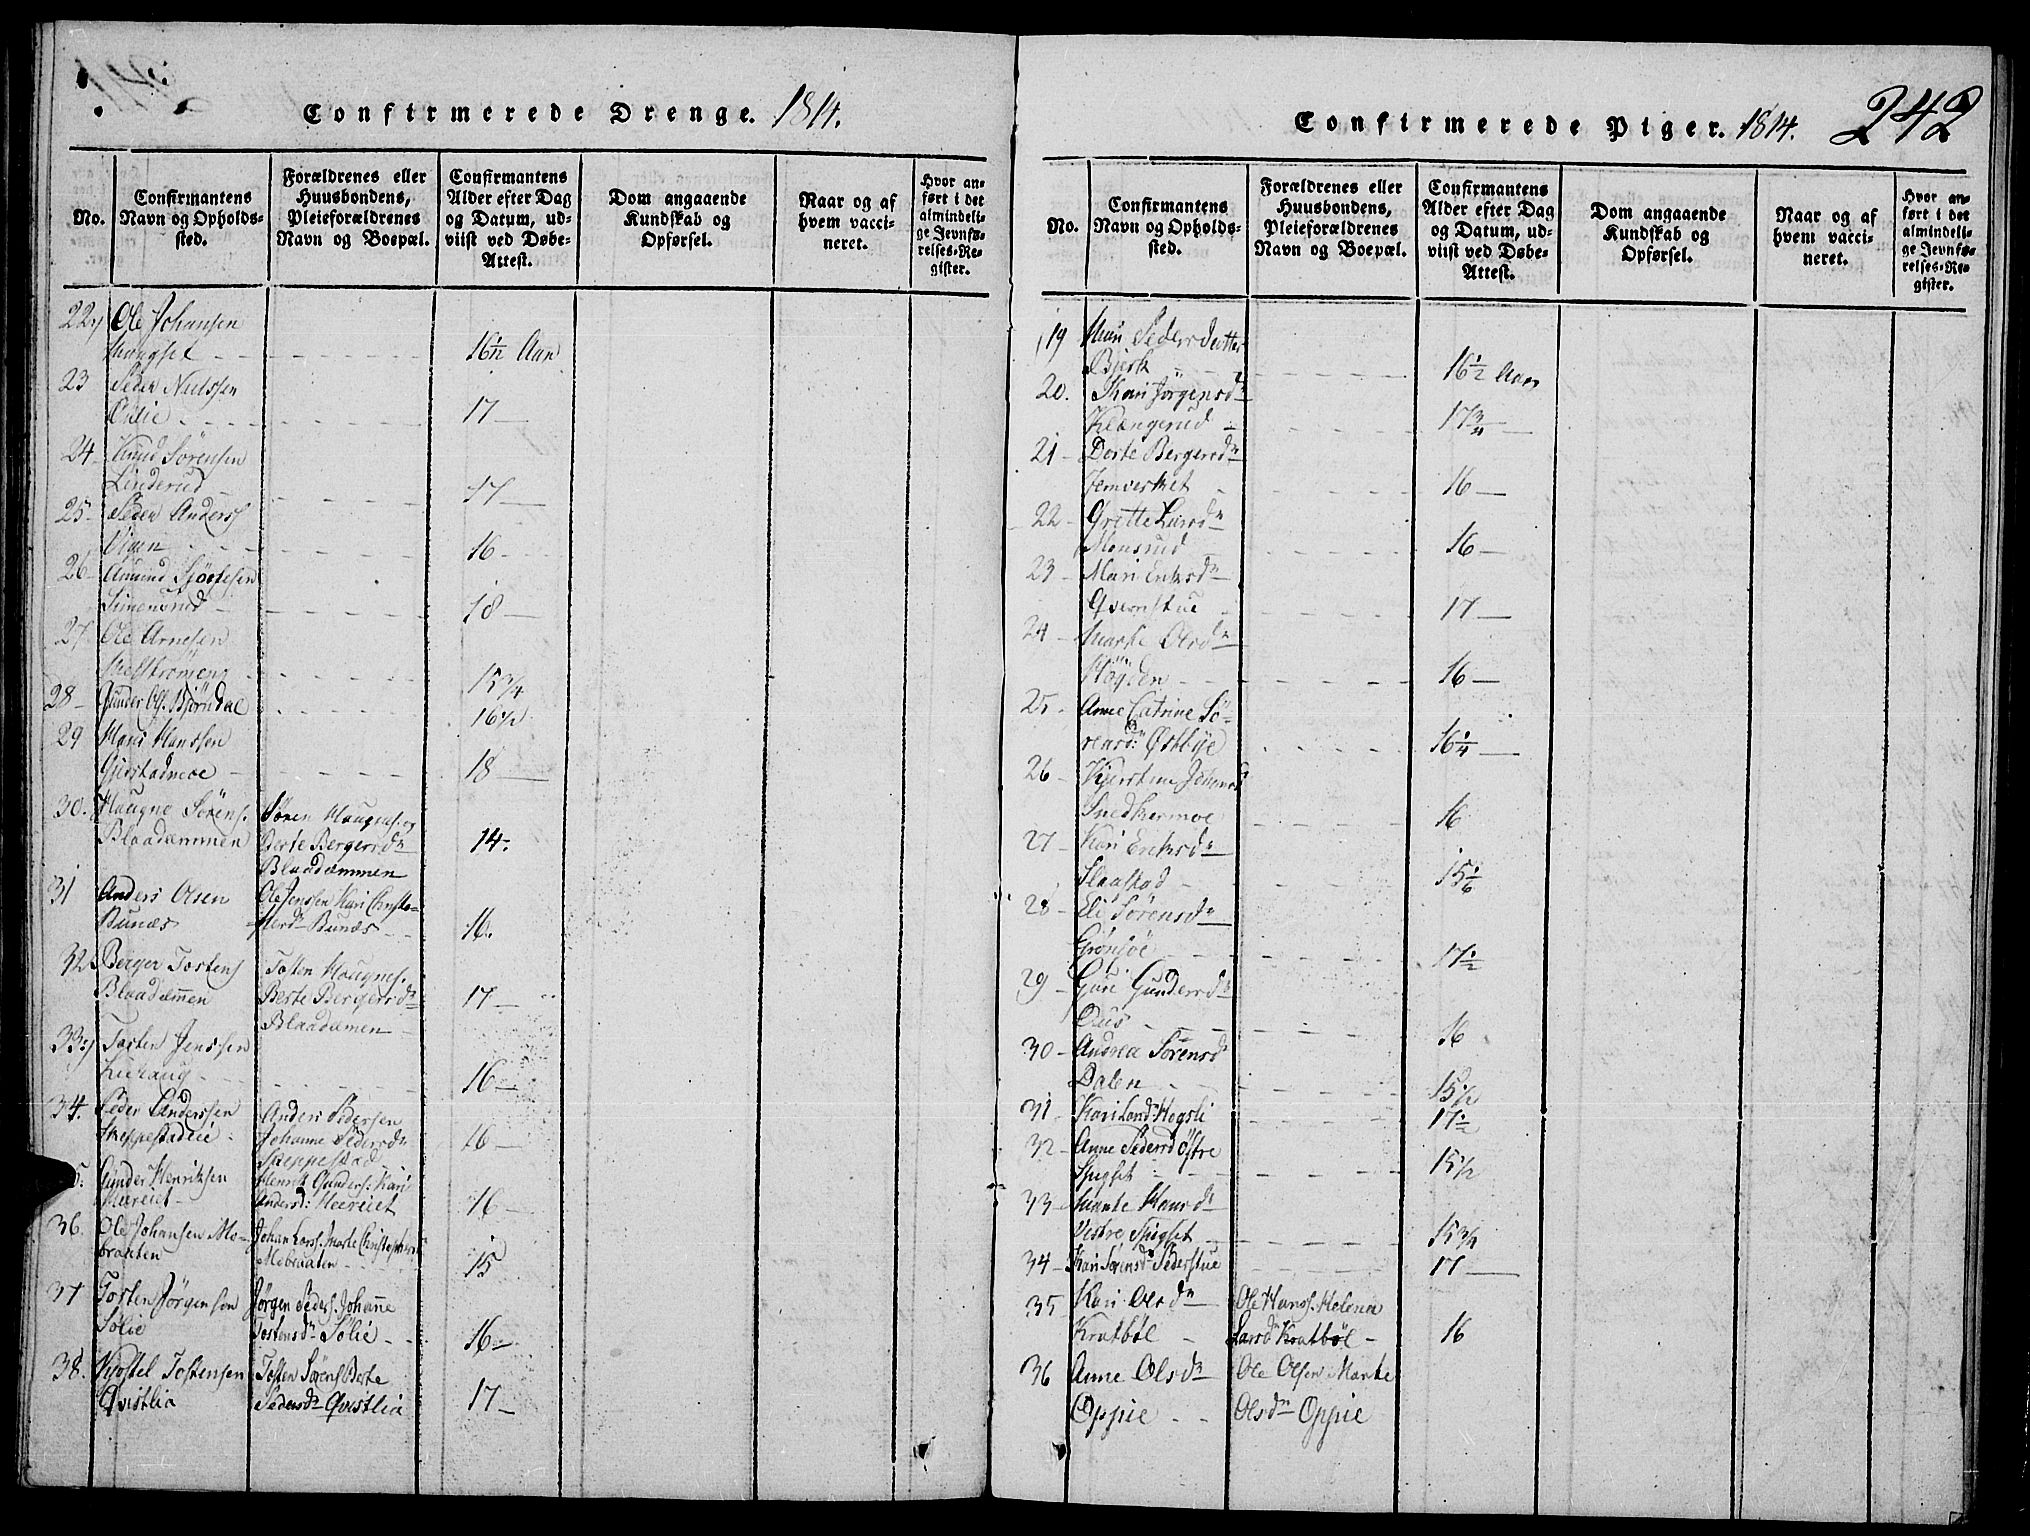 Confirmerede Drenge. 1814.
No.
Confirmantens
Navn og Opholds-
sted.
Forældrenes eller
Huusbondens,
Pleieforældrenes
Navn og Boepæl.
Confirmantens
Alder efter Dag
og Datum, ud-
viist ved Døbe-
Attest.
Dom angaaende
Kundskab og
Opførsel.
Naar og af
hvem vacci-
neret.
Hvor an-
ført i det
almindeli-
ge Jevnfø-
relses-Re-
gister.
22 Ole Johansen
Haugset 16 1/2 Aar
23 Peder Nielssen
17
24 Knud Sørensen
Linderud 17
25 Peder Anderss
Vigen 16
26 Amund
Simensrud 18
27 Ole Arnesen
15 3/4
28 Gunder Ols. Bjørndal 16 1/2
29 Hans Hanssen
Gjerstadmoe 18
30. Haugne Sørens. Søren Haugnes. og
Blaadammen Berte Bergersdr 14.
Blaadammen
31 Anders Olsen Ole Jenssen Kari Christo-
Bunæs ferdr Bunæs 16.
32 Berger Tostens Tosten Haugnes.
Blaadam̅en Berte Bergersdr 17
Blaadam̅en
33 Tosten Jenssen
16
34. Peder Anderssen Anders Pedersen
Skeppestadeie Johanne Pedersdr 16
Skeppestad
5. Gunder Henriksen Henrik Gunders: Kari
Heereiet Andersd: Heereiet 16
36. Ole Johansen Mo- Johan Larss. Marte Christophers
braaten Mobraaten 15
37 Tosten Jørgensen Jørgen Peders. Johan̅e
Solie Tostensdr Solie 16
38. Kjostel Tostensen Tosten Sørens Berte
Qvistlia Pedersdr Qvistlia 17
Confirmerede Piger. 1814. 242
No.
Confirmantens
Navn og Opholds-
sted.
Forældrenes eller
Huusbondens,
Pleieforældrenes
Navn og Boepæl.
Confirmantens
Alder efter Dag
og Datum, ud-
viist ved Døbe-
Attest.
Dom angaaende
Kundskab og
Opførsel.
Naar og af
hvem vacci-
neret.
Hvor an-
ført i det
almindeli-
ge Jevnfø-
relses-Re-
gister.
19 Mari Pedersdotter
Bjerk 16 1/2 Aar
20. Kari Jørgensdr
Klængerud 17 3/4
21 Dorte Bergersdr
Jernverket 16
22 Grette Larsdr
Monsrud 16
23 Mari Eriksdr
Qvernstue 17
24 Marte Olsdr
Høgden 16
25. Anne Catrine Sø-
rensdr Østbye 16 1/4
26 Kjerstine Johannes
Snedkermoe 16
27 Kari Eriksdr
Slaastad 15 1/6
28 Eli Sørensdr
Grønsøe 17 1/2
29 Guri Gundersdr
16
30 Andrea Sørensdr
Dalen 15 1/2
31 Kari Hogsli 17 1/2
32 Anne Pedersd Østre
Spigset 15 1/2
33 Marte Hansdr
Vestre Spigset 15 3/4
34 Kari Sørensdr Pederstue 17
35 Kari Olsdr Ole Hanss. Helena
Kratbøl Larsd Kratbøl 16
36 Anne Olsdr Ole Olsen Marte
Oppie Olsdr Oppie